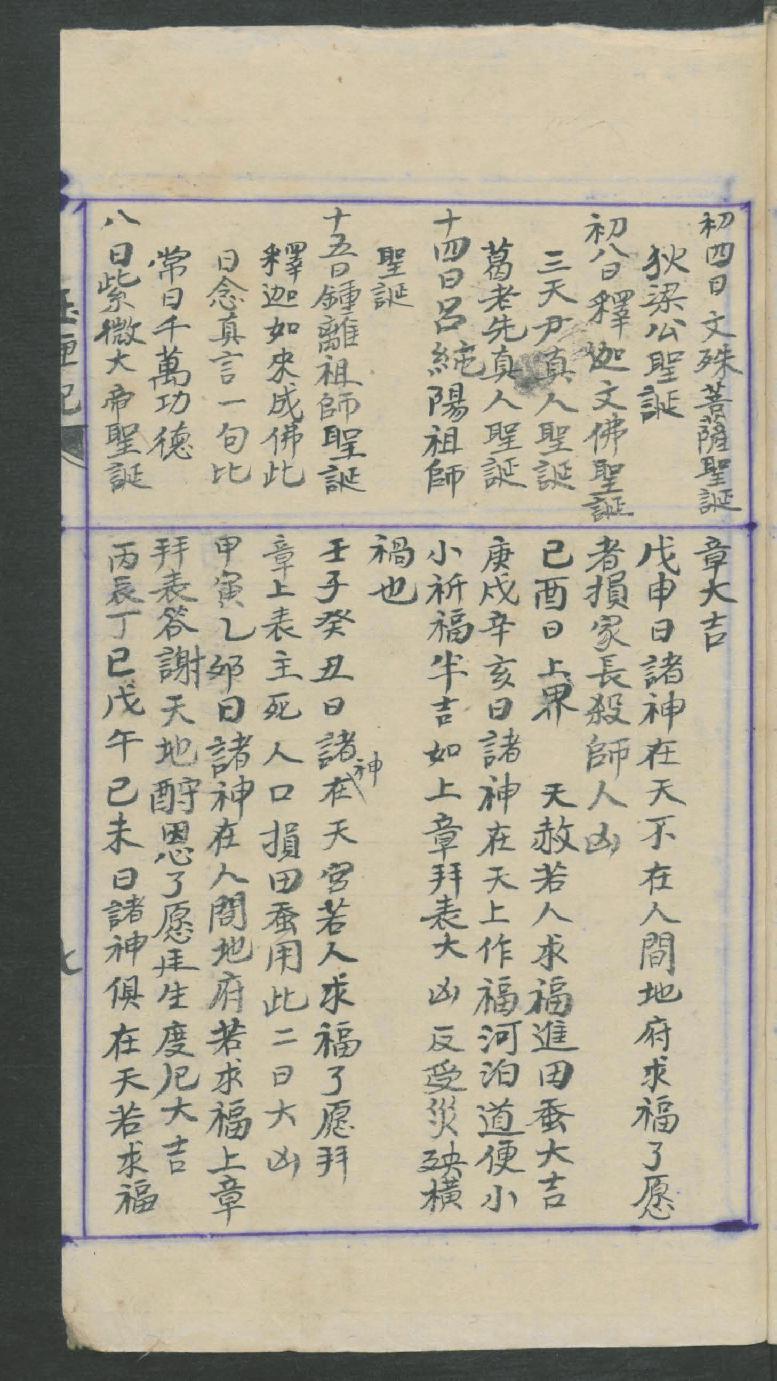 初四日文殊菩薩聖誕
狄梁公聖誕
初八日釋迦文佛聖誕
三天尹真人聖誕
葛老先真人聖誕
十四日呂純陽祖師
聖誕
十五日鍾離祖師聖誕
釋迦如來成佛此
日念真言一句比
常日千萬功德
八日紫微大帝聖誕
章大吉
戊申日諸神在天不在人間地府求福了愿
者損家長殺師人凶
已酉日上界 天赦若人求福進田蚕大吉
庚戍辛亥日諸神在天上作福河泊道便小
小祈福半吉如上章拜表大凶反受災殃橫
禍也
壬子癸丑日諸神在天宮若人求福了愿拜
章上表主死人口損田蚕用此二日大凶
甲寅乙夘日諸神在人間地府若求福上章
拜表答謝天地酧恩了愿生度厄大吉
丙辰丁巳戊午已未日諸神俱在天若求福
匣記
七